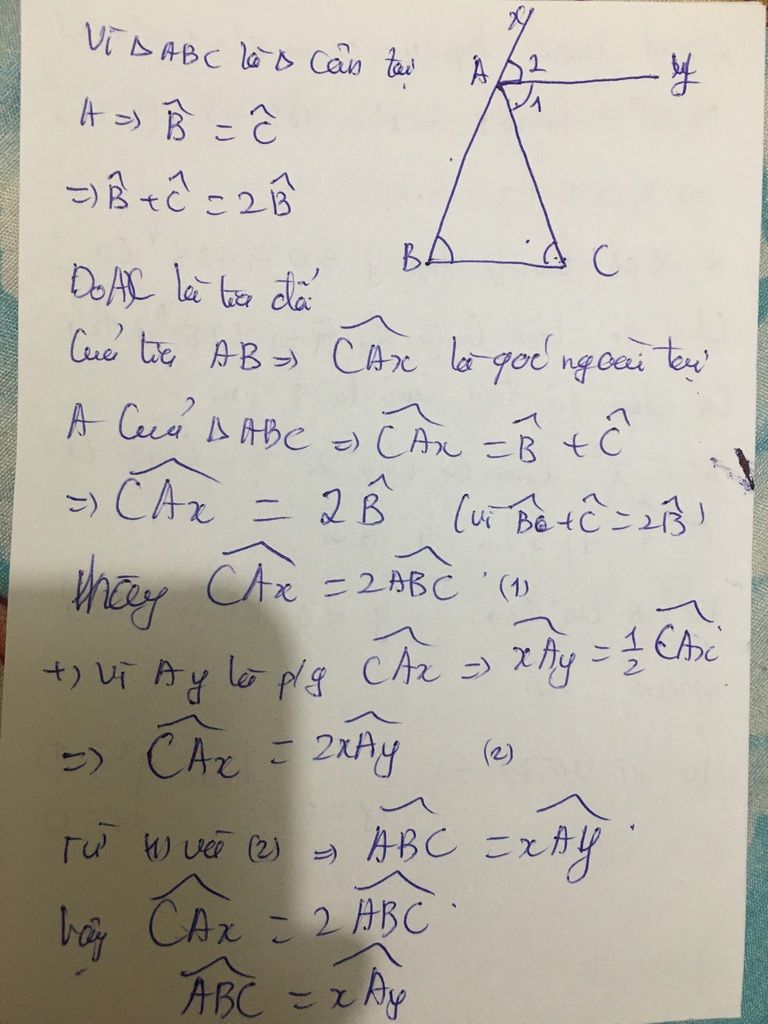 x
Vì Δ ABC là Δ cân tại
A 2 y
1
A => B̂ = Ĉ
=> B̂ + Ĉ = 2B̂
B C
Do Ax là tia đối
Của tia AB => \widehat{CAx} là góc ngoài tại
A Của Δ ABC => \widehat{CAx} = B̂ + Ĉ
=> \widehat{CAx} = 2B̂ (vì B̂ + Ĉ = 2B̂)
\widehat{CAx} = 2\widehat{ABC} (1)
+) Vì Ay là p/g \widehat{CAx} => \widehat{xAy} = 1/2 \widehat{CAx}
=> \widehat{CAx} = 2\widehat{xAy} (2)
Từ (1) và (2) => \widehat{ABC} = \widehat{xAy}.
Vậy \widehat{CAx} = 2\widehat{ABC}.
\widehat{ABC} = \widehat{xAy}